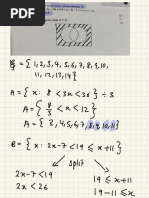 𝓔 = { 1,2,3,4,5,6,7,8,9,10,
11,12,13,14}
A = { x : 8 < 3x < 36 } ÷ 3
A = { 8/3 < x < 12 }
A = { 3,4,5,6,7,8,9,10,11 }
B = { x : 2x-7 < 19 ≤ x+11 }
split
2x-7 < 19
19 ≤ x+11
2x < 26
19-11 ≤ x